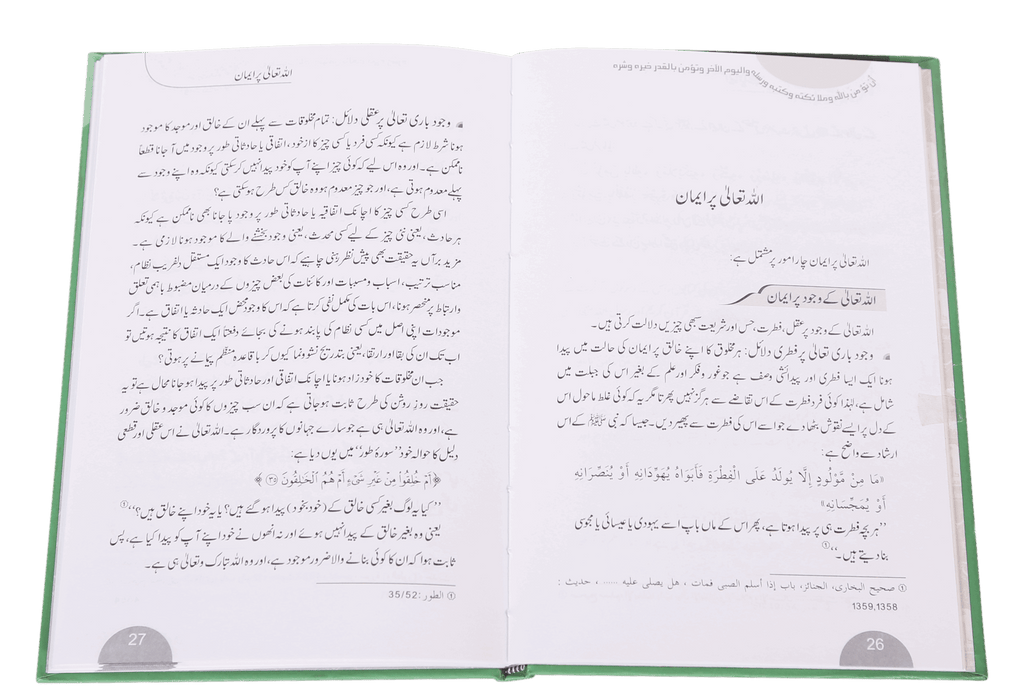 أن تؤمن بالله وملائكته وكتبه ورسله واليوم الآخر وتؤمن بالقدر خيره وشره
اللہ تعالیٰ پر ایمان
اللہ تعالیٰ پر ایمان چار امور پر مشتمل ہے:
اللہ تعالیٰ کے وجود پر ایمان
اللہ تعالیٰ کے وجود پر عقل، فطرت، حس اور شریعت سبھی چیزیں دلالت کرتی ہیں۔
وجود باری تعالیٰ پر فطری دلائل: ہر مخلوق کا اپنے خالق پر ایمان کی حالت میں پیدا
ہونا ایک ایسا فطری اور پیدائشی وصف ہے جو غور وفکر اور علم کے بغیر اس کی جبلت میں
شامل ہے، لہٰذا کوئی فرد فطرت کے اس تقاضے سے ہرگز نہیں پھرتا مگر یہ کہ کوئی غلط ماحول اس
کے دل پر ایسے نقوش بٹھا دے جو اسے اس کی فطرت سے پھیر دیں۔ جیسا کہ نبی ﷺ کے اس
ارشاد سے واضح ہے:
«مَا مِنْ مَّوْلُودٍ إِلَّا يُولَدُ عَلَى الْفِطْرَةِ فَأَبَوَاهُ يُهَوِّدَانِهِ أَوْ يُنَصِّرَانِهِ
أَوْ يُمَجِّسَانِهِ»
”ہر بچہ فطرت ہی پر پیدا ہوتا ہے، پھر اس کے ماں باپ اسے یہودی یا عیسائی یا مجوسی
بنا دیتے ہیں۔“①
① صحيح البخاري، الجنائز، باب إذا أسلم الصبي فمات، هل يصلى عليه ......، حديث:
1359,1358
26
اللہ تعالیٰ پر ایمان
وجود باری تعالیٰ پر عقلی دلائل: تمام مخلوقات سے پہلے ان کے خالق اور موجد کا موجود
ہونا شرط لازم ہے کیونکہ کسی فرد یا کسی چیز کا ازخود، اتفاقی یا حادثاتی طور پر وجود میں آ جانا قطعاً
ناممکن ہے۔ اور وہ اس لیے کہ کوئی چیز اپنے آپ کو خود پیدا نہیں کر سکتی کیونکہ وہ اپنے وجود سے
پہلے معدوم ہوتی ہے، اور جو چیز معدوم ہو وہ خالق کس طرح ہو سکتی ہے؟
اسی طرح کسی چیز کا اچانک اتفاقیہ یا حادثاتی طور پر وجود پا جانا بھی ناممکن ہے کیونکہ
ہر حادث، یعنی نئی چیز کے لیے کسی محدث، یعنی وجود بخشنے والے کا موجود ہونا لازمی ہے۔
مزید برآں یہ حقیقت بھی پیش نظر رہنی چاہیے کہ اس حادث کا وجود ایک مستقل دلفریب نظام،
مناسب ترتیب، اسباب ومسببات اور کائنات کی بعض چیزوں کے درمیان مضبوط باہمی تعلق
وارتباط پر منحصر ہونا، اس بات کی مکمل نفی کرتا ہے کہ اس کا وجود محض ایک حادثہ یا اتفاق ہے۔ اگر
موجودات اپنی اصل میں کسی نظام کی پابند ہونے کی بجائے دفعتاً ایک اتفاق کا نتیجہ ہوتیں تو
اب تک ان کی بقا اور ارتقا، یعنی بتدریج نشوونما کیوں کر باقاعدہ منظم پیمانے پر ہوتی؟
جب ان مخلوقات کا خود زاد ہونا یا اچانک اتفاقی اور حادثاتی طور پر پیدا ہو جانا محال ہے تو یہ
حقیقت روزِ روشن کی طرح ثابت ہو جاتی ہے کہ ان سب چیزوں کا کوئی موجد و خالق ضرور
ہے، اور وہ اللہ تعالیٰ ہی ہے جو سارے جہانوں کا پروردگار ہے۔ اللہ تعالیٰ نے اس عقلی اور قطعی
دلیل کا حوالہ خود ”سورۂ طور“ میں یوں دیا ہے:
﴿أَمْ خُلِقُوا۟ مِنْ غَيْرِ شَىْءٍ أَمْ هُمُ الْخَـٰلِقُونَ ﴿٣٥﴾﴾
”کیا یہ لوگ بغیر کسی خالق کے (خود بخود) پیدا ہو گئے ہیں؟ یا یہ خود اپنے خالق ہیں؟“①
یعنی وہ بغیر خالق کے پیدا نہیں ہوئے اور نہ انھوں نے خود اپنے آپ کو پیدا کیا ہے، پس
ثابت ہوا کہ ان کا کوئی بنانے والا ضرور موجود ہے، اور وہ اللہ تبارک وتعالیٰ ہی ہے۔
① الطور: 35/52
27